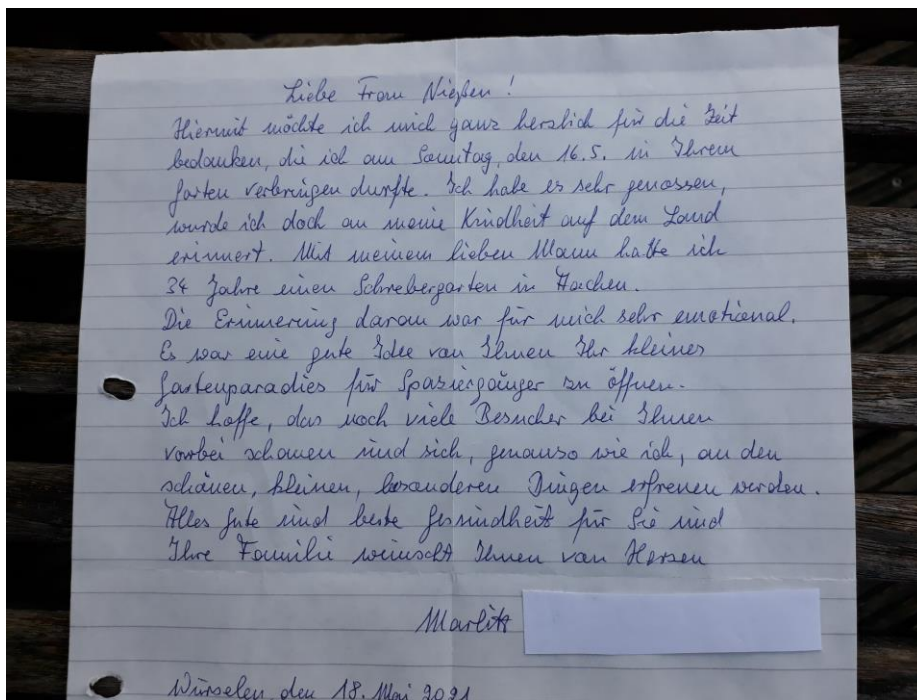 Liebe Frau Nießen!
Hiermit möchte ich mich ganz herzlich für die Zeit
bedanken, die ich am Sonntag, den 16.5. in Ihrem
Garten verbringen durfte. Ich habe es sehr genossen,
wurde ich doch an meine Kindheit auf dem Land
erinnert. Mit meinem lieben Mann hatte ich
34 Jahre einen Schrebergarten in Aachen.
Die Erinnerung daran war für mich sehr emotional.
Es war eine gute Idee von Ihnen Ihr kleines
Gartenparadies für Spaziergänger zu öffnen.
Ich hoffe, das noch viele Besucher bei Ihnen
vorbei schauen und sich, genauso wie ich, an den
schönen, kleinen, besonderen Dingen erfreuen werden.
Alles Gute und beste Gesundheit für Sie und
Ihre Familie wünscht Ihnen von Herzen
Marlitt
Würselen den 18. Mai 2021